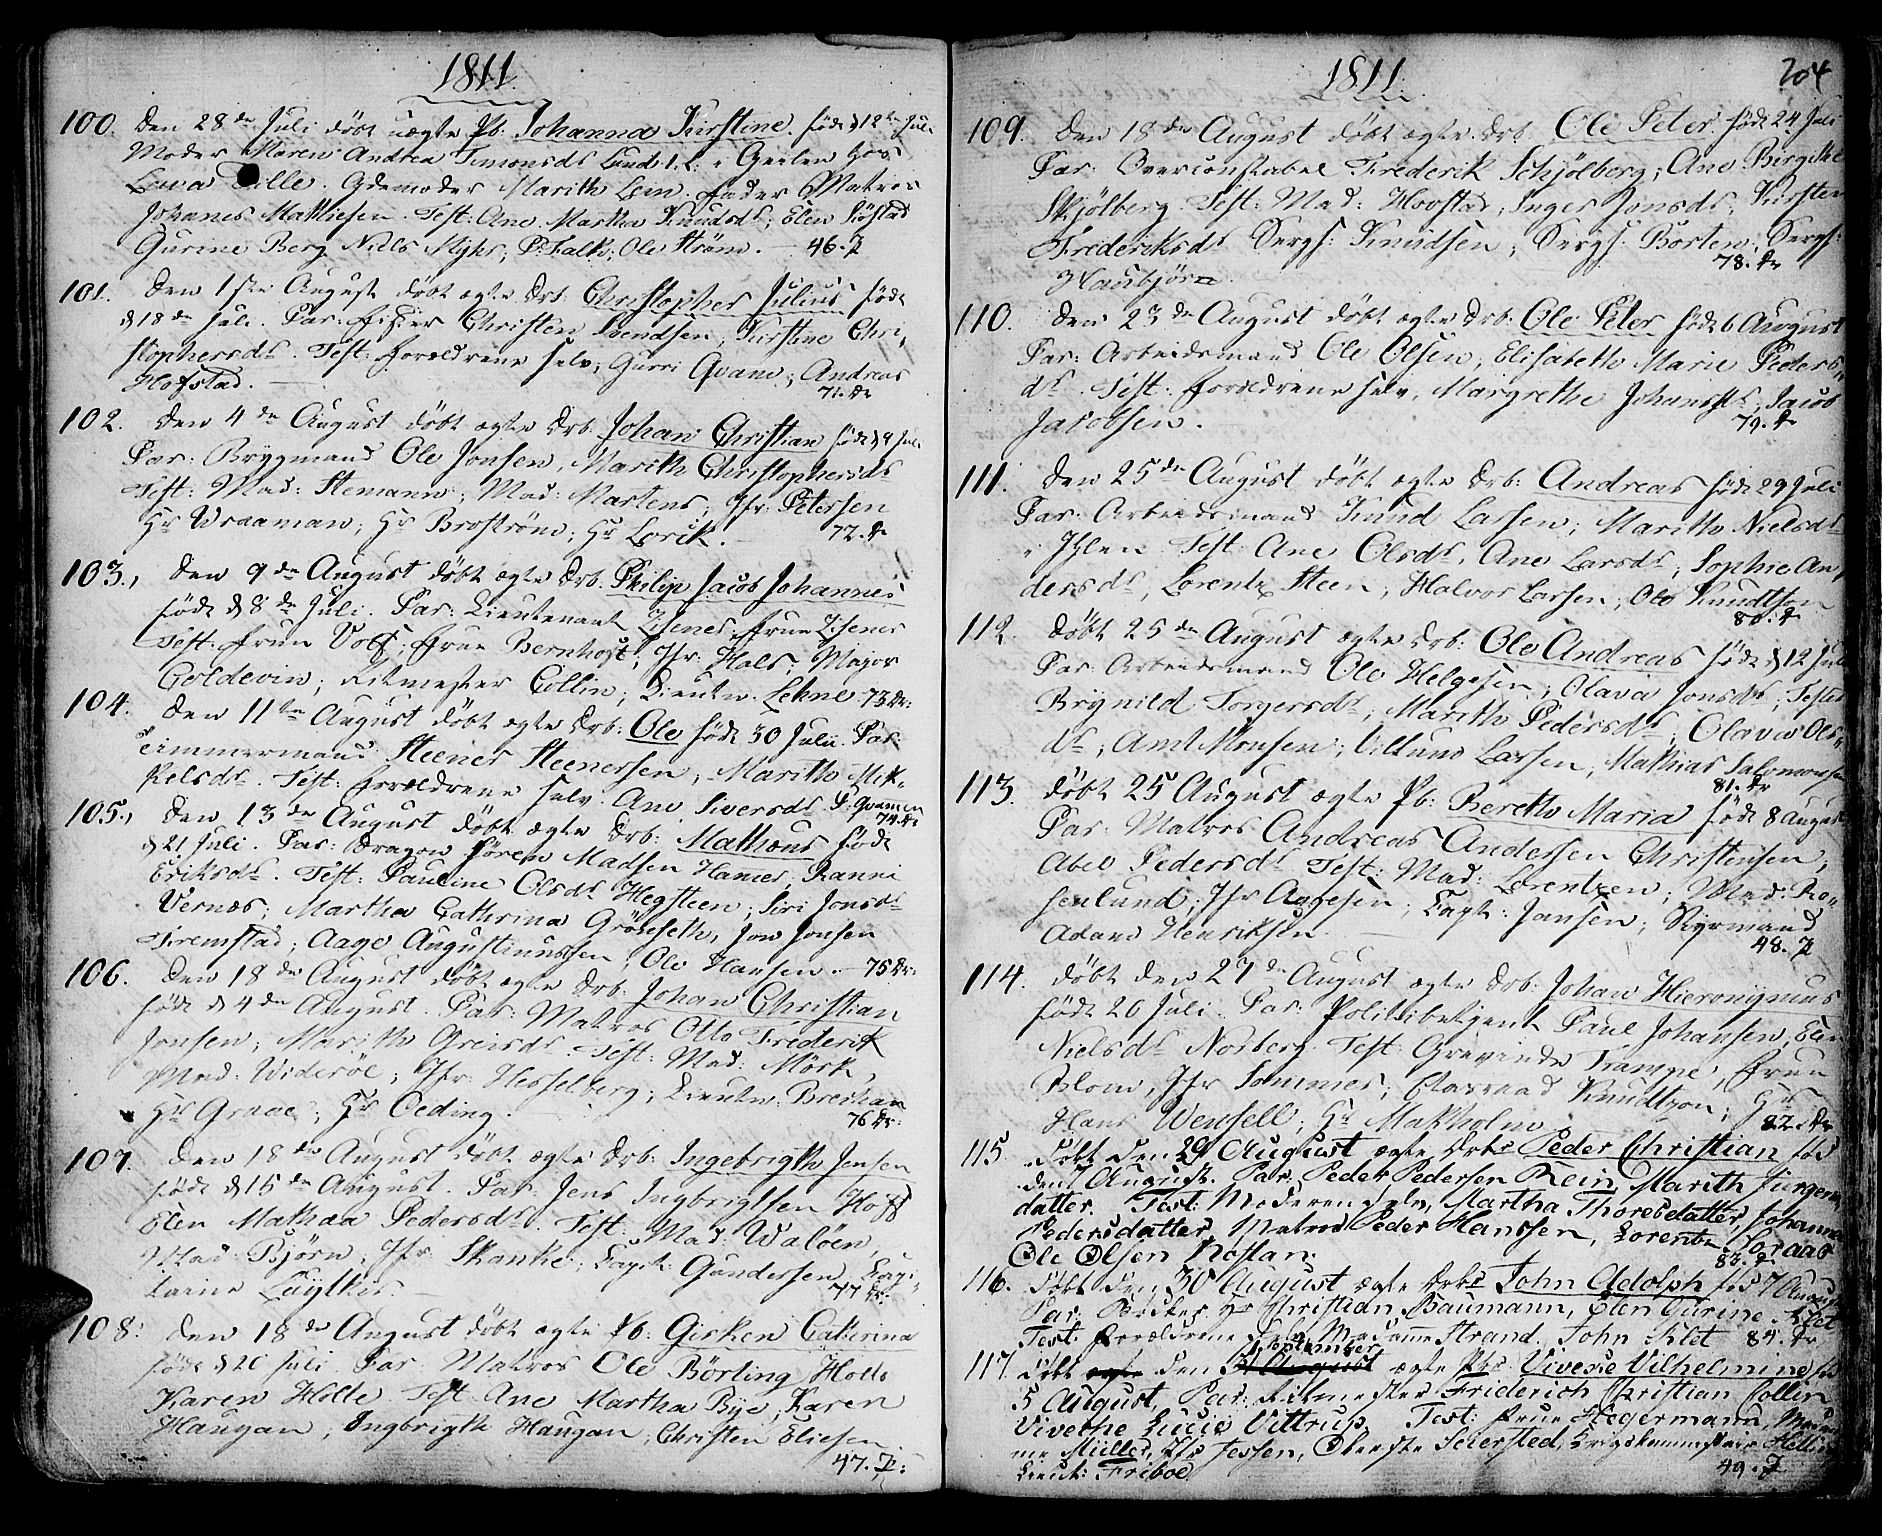 1811.
100. Den 28de Juli döbt uægte Pb. Johanna Kirstine. föd d 12te Juli
Moder Maren Andrea Simonsdr Lund. l. i Geelen hos
Lava Tille. Gdemoder Marith Lem. fader Matros
Johanes Mathiesen. Test: Ane Martha Knudsdr; Elen Söstad
Gurine Berg Niels Myhr; P: Falk; Ole Ström. — 46. P
101. Den 1ste August döbt ægte Drb: Christopher Julius föd
d 18de Juli. Par: fisker Christen Svendsen, Kirstine Chri,
stophersdr. Test: forældrene selv; Gurri Qvam; Andreas
Hofstad. — 71. Dr
102. Den 4de August döbt ægte Drb. Johan Christian föd d 9 Juli
Par: Brygmand Ole Jonsen, Marith Christophersdr
Test: Mad: Hemann; Mad: Martens; Jfr: Petersen
Hr Wraaman; Hr Broström; Hr Lorck. — 72. Dr
103., Den 9de August döbt ægte Drb. Philip Jacob Johannes
föd d 8de Juli. Par: Lieutenant Isener, frue Isener
Test: frue Voss; frue Bernhoft; Jfr: Hals; Major
Coldevin; Ritmester Collin; Lieutn: Lehne 73 Dr:
104. Den 11te August döbt ægte Drb: Ole föd 30 Julii. Par
Timmermand Steener Steenersen, Marith Mik-
kelsdr. Test: forældrene selv. Ane Siversdr P: Qvamen
74. Dr
105., Den 13de August döbt ægte Drb: Mathæus föd
d 21 Juli. Par: Dragon Sören Madsen Hamer, Ranni
Eriksdr. Test: Pauline Olsdr Hegsteen; Siri Jonsdr
Vernæs; Martha Cathrina Grönseth, Jon Jonsen
Fremstad; Aage Augustinussen; Ole Hansen. — 75 Dr:
106. Den 18de August döbt ægte Drb. Johan Christian
föd d 4de August. Par: Matros Otto Frederik
Jonsen; Marith Greisdr. Test: Mad: Mörk,
Mad: Wideröe; Jfr: Hesselberg; Lieutn: Breshan
Hr Graae; Hr Oeding. 76 Dr:
107. Den 18de August döbt ægte Drb: Ingebrigth Jensen
föd d 15de August. Par: Jens Ingbrigtsen Hoff
Elen Mathea Pedersdr. Test: Mad: Walöen,
Mad: Björn; Jfr Skanke; Capt: Gundersen, Capi-
taine Lüytkis. 77 Dr:
108: Den 18de August döbt ægte Pb: Gisken Catherina
föd d 20 Juli. Par: Matros Ole Börting Holte
Karen Holte Test Ane Martha Bye, Karen
Haugan, Ingbrigth Haugan, Christen Eliesen
47. P:
1811. 204
109. Den 18de August döbt ægte Drb. Ole Peter föd 24 Juli
Par: Overconstabel Frederik Schjölberg; Ane Birgithe
Skjölberg Test: Mad: Hovstad; Inger Jonsdr; Kirsten
Frederiksdr Sergt: Knudsen; Sergt: Borten; Sergt:
Haubjörn. 78. Dr
110. Den 23de August döbt ægte Drb: Ole Peter föd 6 August
Par: Arbeidsmand Ole Olsen; Elisabeth Marie Peders
dr. Test: forældrene selv, Margrethe Johansdr, Jacob
Jacobsen. 79. Dr
111. Den 25de August döbt ægte Drb: Andreas föd 29 Juli
Par: Arbeidsmand Knud Larsen; Marith Nielsdr
i Ihlen. Test: Ane Olsdr, Ane Larsdr; Sophie An,
dersdr, Lorentz Steen, Halvor Larsen; Ole Knudtson
80. Dr
112. döbt 25de August ægte Drb: Ole Andreas föd d 12 Juli
Par: Arbeidsmand Ole Helgesen; Olava Jonsdr; Test:
Brynild Torgersdr; Marith Pedersdr; Olava Ols,
dr; Amt Monsen; Villund Larsen; Mathias Salomonsen
81. Dr
113. döbt 25 August ægte Pb: Bereth Maria föd 8 August
Par: Matros Andreas Andersen Christensen;
Abel Pedersdr Test: Mad: Lorentzen; Mad: Ro-
senlund; Jfr Aagesen; Capt: Jansen; Styrmand
Adam Henriksen. — 48. P
114. döbt den 27de August ægte Drb: Johan Hieronymus
föd 26 Juli. Par: Politibetjent Paul Johansen, Elen
Nielsdr Norberg. Test: Grevinde Trampe, frue
Blom, Jfr Sommer; Etatsraad Knudtzon; Hr
Hans Wensell; Hr Makholm 82. Dr
115. Döbt den 29 August ægte Drb: Peder Christian föd
den 7 August. Par: Peder Pedersen Rein, Marith Jürgens
datter. Test: Moderen selv, Martha Thoresdatter, Johanna
Pedersdatter, Matros Peder Hanssen, Lorentz Graae
Ole Olsen Rostan. 83. Dr
116. Döbt den 30 August ægte Drb: John Adolph föd 7 August
Par: Becker Hr Christian Baumann, Elen Gurine Klet
Test: Forældrene selv, Madamme Strand. John Klet 84. Dr
117. Döbt ægte den September ægte Pb: Viveke Vilhelmine föd
5 August, Par: Ritmester Friderich Christian Collin
Viveche Lucie Vittrup. Test: frue Hegermann, Mada
me Müller, Jfr Jessen, Oberste Seiersted, Krigskommissair
Lieut: Friboe 49. P